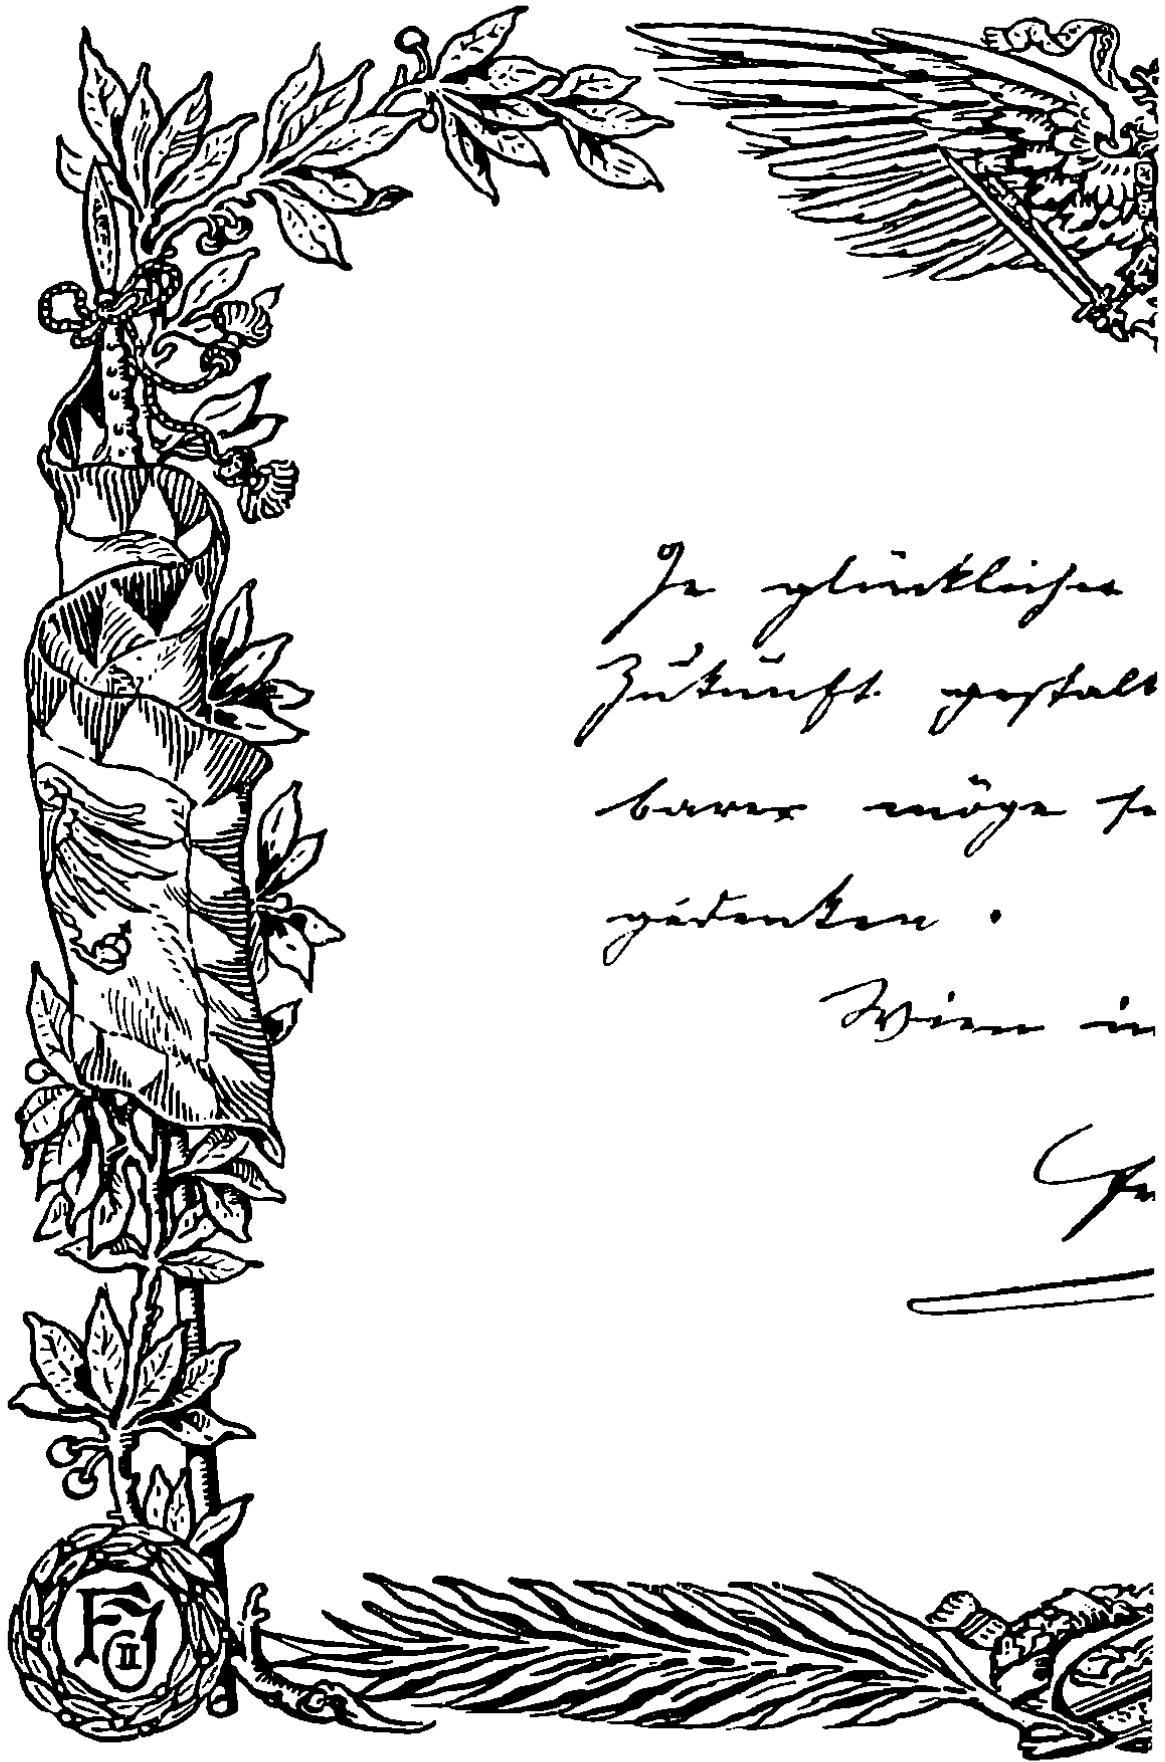 Je glücklicher
Zukunft gestalt
barer möge se
gedenken.
Wien im
FJ
II